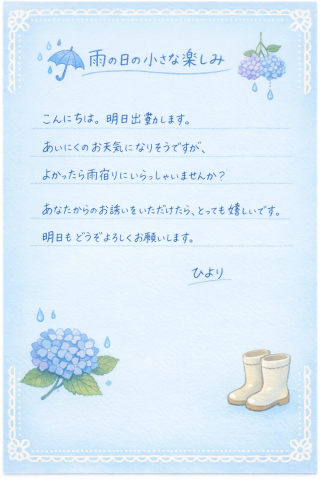 雨の日の小さな楽しみ
こんにちは。明日出勤します。
あいにくのお天気になりそうですが、
よかったら雨宿りにいらっしゃいませんか?
あなたからのお誘いをいただけたら、とっても嬉しいです。
明日もどうぞよろしくお願いします。
ひより